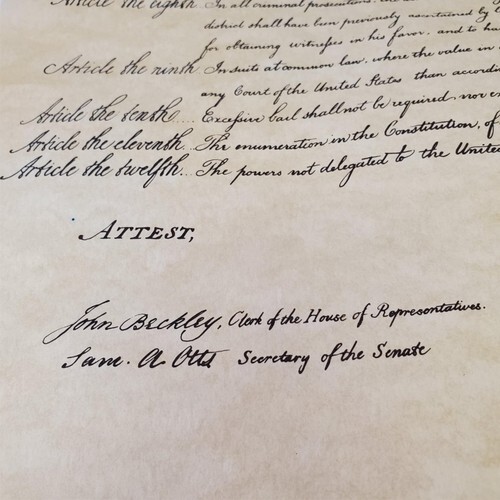 Article the eighth In all criminal prosecutions, the
district shall have been previously ascertained by
for obtaining witnesses in his favor, and to ha
Article the ninth In suits at common law, where the value in
any Court of the United States than accordin
Article the tenth.... Excessive bail shall not be required, nor e
Article the eleventh.. The enumeration in the Constitution, of
Article the twelfth... The powers not delegated to the United
ATTEST,
John Beckley, Clerk of the House of Representatives.
Sam. A Otis Secretary of the Senate